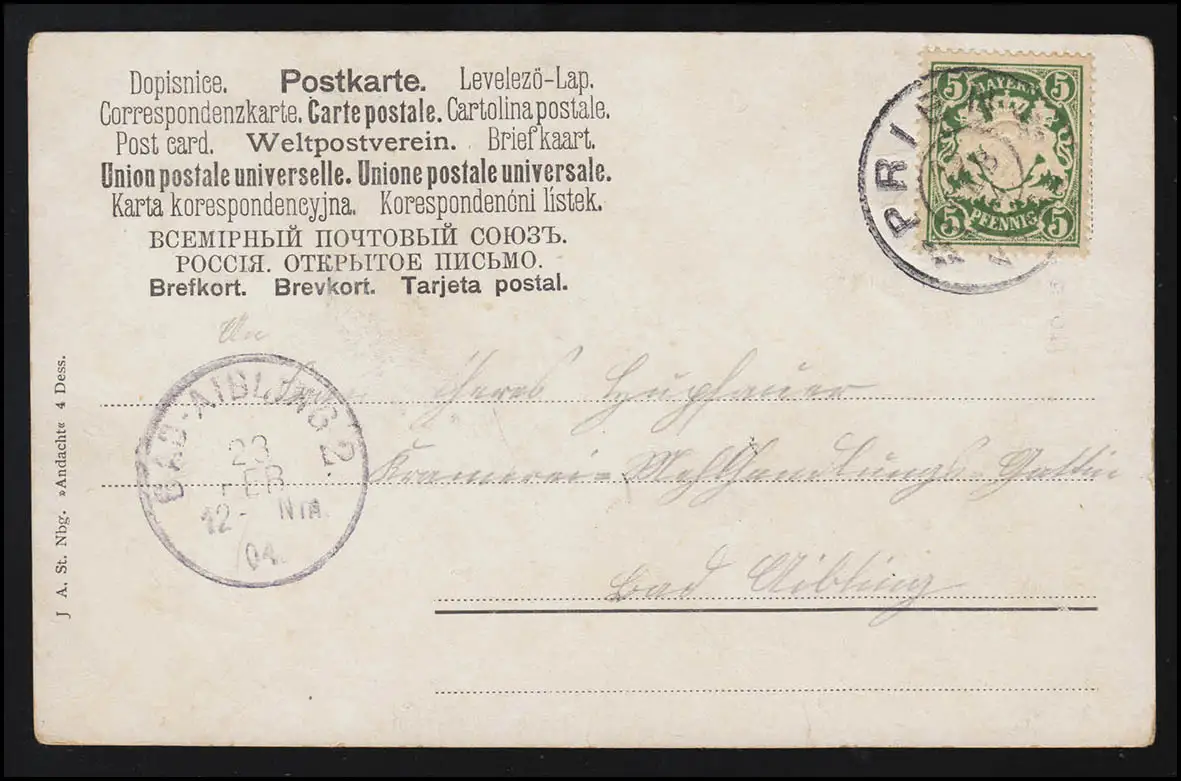 Dopisnice. Postkarte. Levelező-Lap.
Correspondenzkarte. Carte postale. Cartolina postale.
Post card. Weltpostverein. Briefkaart.
Union postale universelle. Unione postale universale.
Karta korespondencyjna. Korespondenčni listek.
ВСЕМІРНЫЙ ПОЧТОВЫЙ СОЮЗЪ.
РОССІЯ. ОТКРЫТОЕ ПИСЬМО.
Brefkort. Brevkort. Tarjeta postal.
5 BAYERN 5
5 PFENNIG 5
PRIEN
An
Herrs Hupfauer
Kramerei-Mehlhandlungs-Gattin
Bad Aibling
BAD-AIBLING 2.
23
FEB
12- Nm.
04.
J A. St. Nbg. »Andacht« 4 Dess.